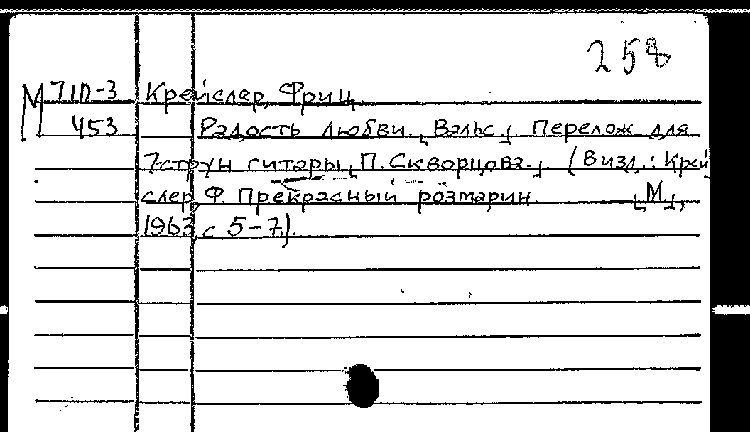 258
М 71П-3 Крейслер, Фриц.
453 Радость любви. [Вальс]. Перелож для
7струн гитары [П. Скворцова]. (В изд.: Крей
слер, Ф. Прекрасный розмарин. [М.],
1963, с 5-7).